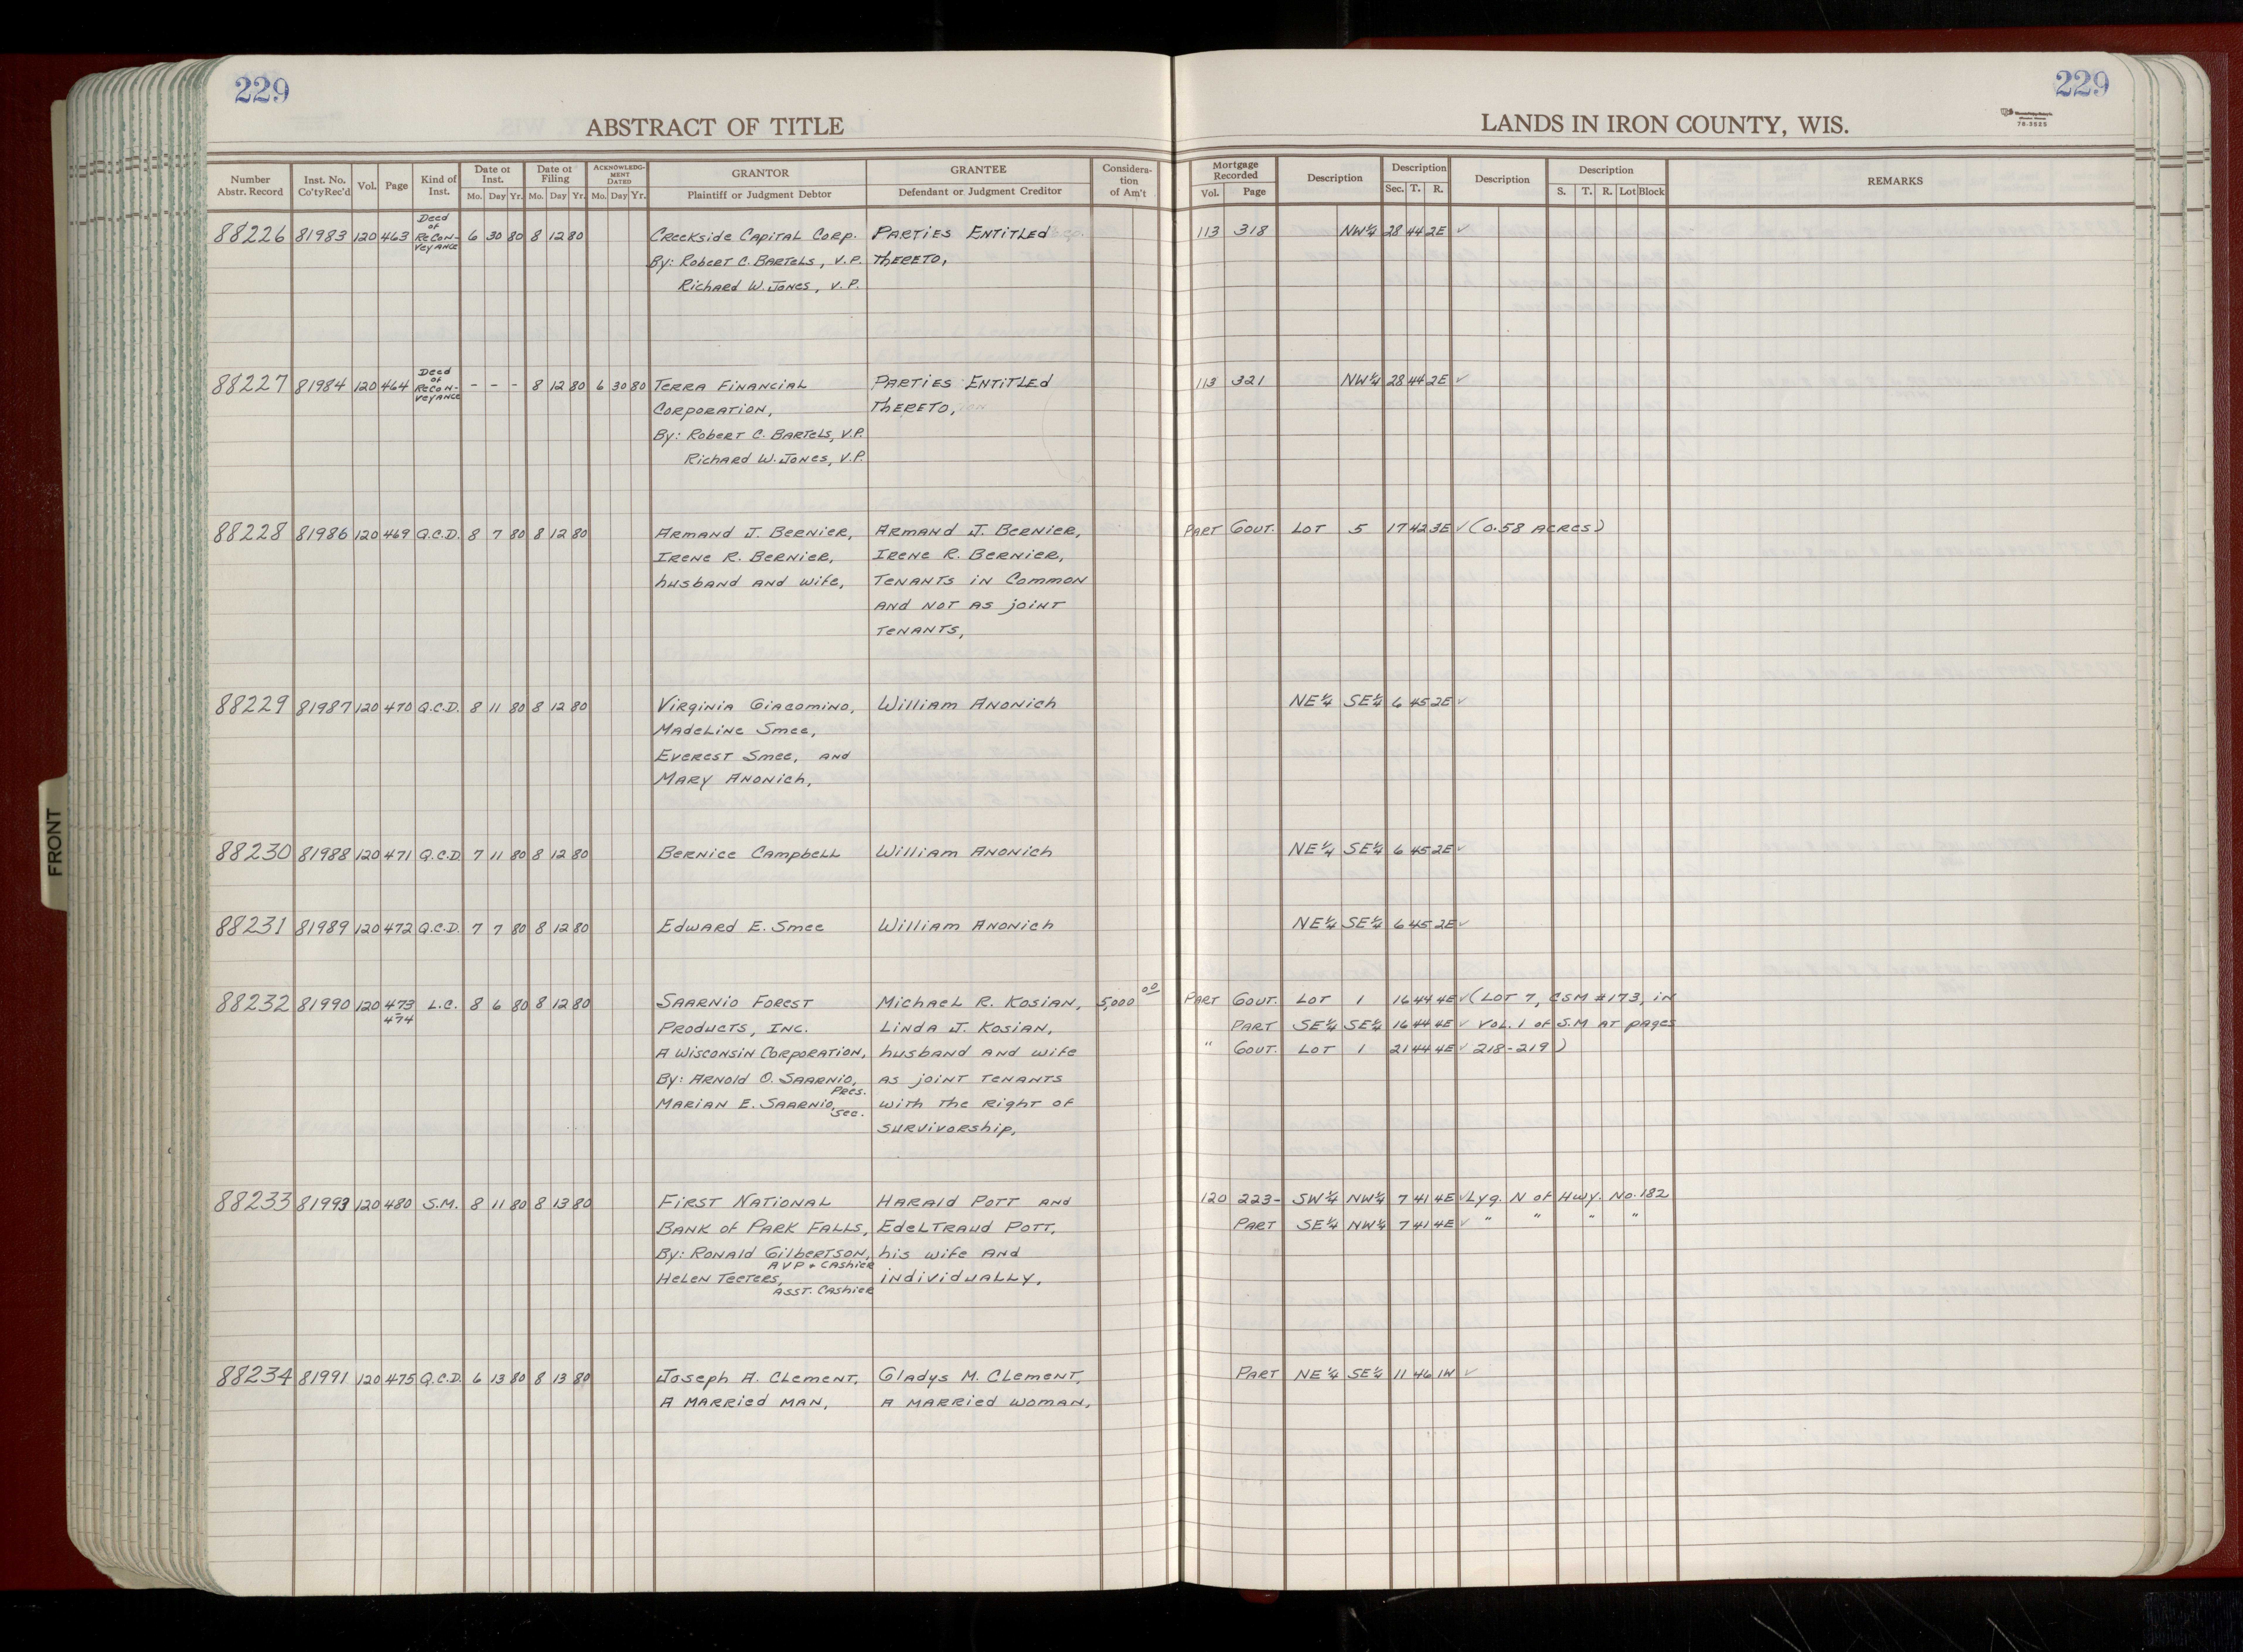 229
ABSTRACT OF TITLE
Number Abstr. Record | Inst. No. Co'ty Rec'd | Vol. | Page | Kind of Inst. | Date of Inst. Mo. Day Yr. | Date of Filing Mo. Day Yr. | ACKNOWLEDGMENT DATED Mo. Day Yr. | GRANTOR Plaintiff or Judgment Debtor | GRANTEE Defendant or Judgment Creditor | Consideration of Am't
229
LANDS IN IRON COUNTY, WIS.
78-3525
Mortgage Recorded Vol. Page | Description | Description Sec. T. R. | Description | Description S. T. R. Lot Block | REMARKS
88226 81983 120 463 Deed of ReConveyance 6 30 80 8 12 80 Creekside Capital Corp. Parties Entitled 113 318 NW¼ 28 44 2E ✓
By: Robert C. Bartels, V.P. thereto,
Richard W. Jones, V.P.
88227 81984 120 464 Deed of ReConveyance - - - 8 12 80 6 30 80 Terra Financial Parties Entitled 113 321 NW¼ 28 44 2E ✓
Corporation, thereto,
By: Robert C. Bartels, V.P.
Richard W. Jones, V.P.
88228 81986 120 469 Q.C.D. 8 7 80 8 12 80 Armand J. Bernier, Armand J. Bernier, Part Gout. Lot 5 17 42 3E ✓ (0.58 Acres)
Irene R. Bernier, Irene R. Bernier,
husband and wife, Tenants in Common
and not as joint
tenants,
88229 81987 120 470 Q.C.D. 8 11 80 8 12 80 Virginia Giacomino, William Anonich NE¼ SE¼ 6 45 2E ✓
Madeline Smee,
Everest Smee, and
Mary Anonich,
88230 81988 120 471 Q.C.D. 7 11 80 8 12 80 Bernice Campbell William Anonich NE¼ SE¼ 6 45 2E ✓
88231 81989 120 472 Q.C.D. 7 7 80 8 12 80 Edward E. Smee William Anonich NE¼ SE¼ 6 45 2E ✓
88232 81990 120 473-474 L.C. 8 6 80 8 12 80 Saarnio Forest Michael R. Kosian, 5,000 00 Part Gout. Lot 1 16 44 4E ✓ (Lot 7, CSM #173, in
Products, Inc. Linda J. Kosian, Part SE¼ SE¼ 16 44 4E ✓ Vol. 1 of S.M at pages
A Wisconsin Corporation, husband and wife " Gout. Lot 1 21 44 4E ✓ 218-219)
By: Arnold O. Saarnio, Pres. as joint tenants
Marian E. Saarnio, Sec. with the right of
survivorship,
88233 81993 120 480 S.M. 8 11 80 8 13 80 First National Harald Pott and 120 223- SW¼ NW¼ 7 41 4E ✓ Lyg. N of Hwy. No. 182
Bank of Park Falls, Edeltraud Pott, Part SE¼ NW¼ 7 41 4E ✓ " " " "
By: Ronald Gilbertson, AVP + Cashier his wife and
Helen Teeters, Asst. Cashier individually,
88234 81991 120 475 Q.C.D. 6 13 80 8 13 80 Joseph A. Clement, Gladys M. Clement, Part NE¼ SE¼ 11 46 1W ✓
A married man, A married woman,
FRONT